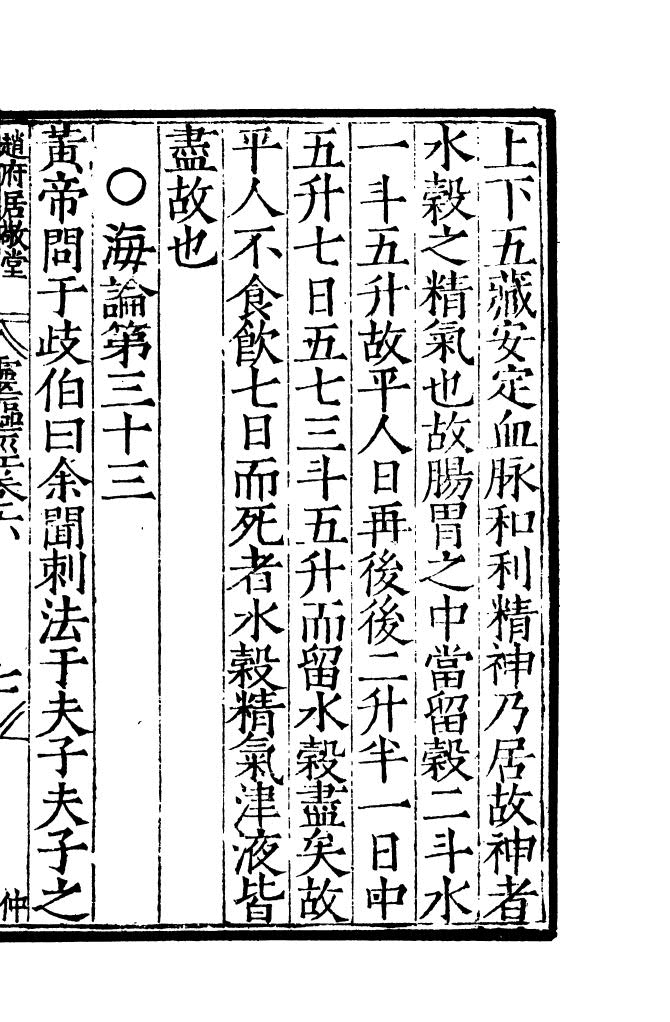 上下五藏安定血脉和利精神乃居故神者
水穀之精氣也故腸胃之中當留穀二斗水
一斗五升故平人日再後後二升半一日中
五升七日五七三斗五升而留水穀盡矣故
平人不食飲七日而死者水穀精氣津液皆
盡故也
○海論第三十三
黃帝問于歧伯曰余聞刺法于夫子夫子之
趙府居敬堂
靈樞經卷六
七
仲